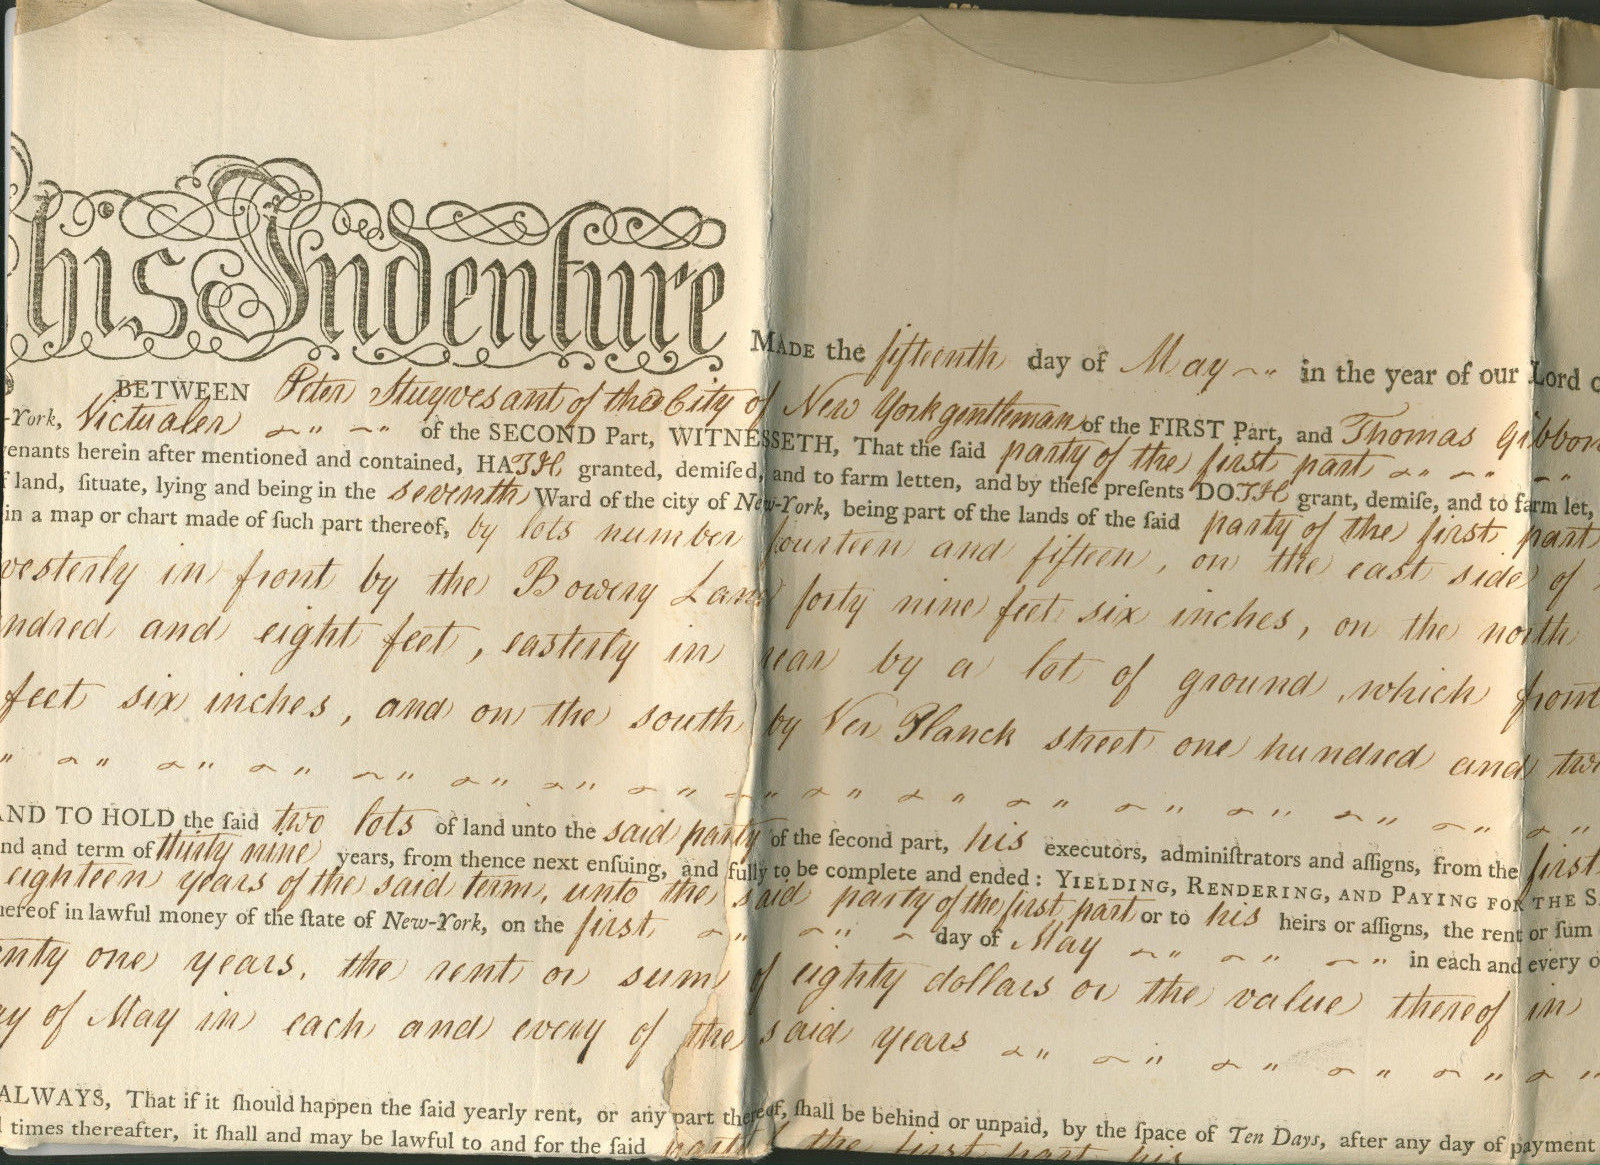 his Indenture
MADE the fifteenth day of May in the year of our Lord
BETWEEN Peter Stuyvesant of the City of New York gentleman of the FIRST Part, and Thomas Gibbon
-York, Victualer of the SECOND Part, WITNESSETH, That the ſaid party of the first part
venants herein after mentioned and contained, HATH granted, demiſed, and to farm letten, and by theſe preſents DOTH grant, demiſe, and to farm let,
f land, ſituate, lying and being in the seventh Ward of the city of New-York, being part of the lands of the ſaid party of the first part
in a map or chart made of ſuch part thereof, by lots number fourteen and fifteen, on the east side of
westerly in front by the Bowery Lane forty nine feet six inches, on the north
ndred and eight feet, easterly in rear by a lot of ground, which front
feet six inches, and on the south by Ver Planck street one hundred and two
AND TO HOLD the ſaid two lots of land unto the said party of the ſecond part, his executors, adminiſtrators and aſſigns, from the first
nd and term of thirty nine years, from thence next enſuing, and fully to be complete and ended: YIELDING, RENDERING, AND PAYING FOR THE S
eighteen years of the said term, unto the said party of the first part or to his heirs or aſſigns, the rent or ſum
hereof in lawful money of the ſtate of New-York, on the first day of May in each and every o
enty one years, the rent or sum of eighty dollars or the value thereof in
ay of May in each and every of the said years
ALWAYS, That if it ſhould happen the ſaid yearly rent, or any part thereof, ſhall be behind or unpaid, by the ſpace of Ten Days, after any day of payment
l times thereafter, it ſhall and may be lawful to and for the ſaid party of the first part his